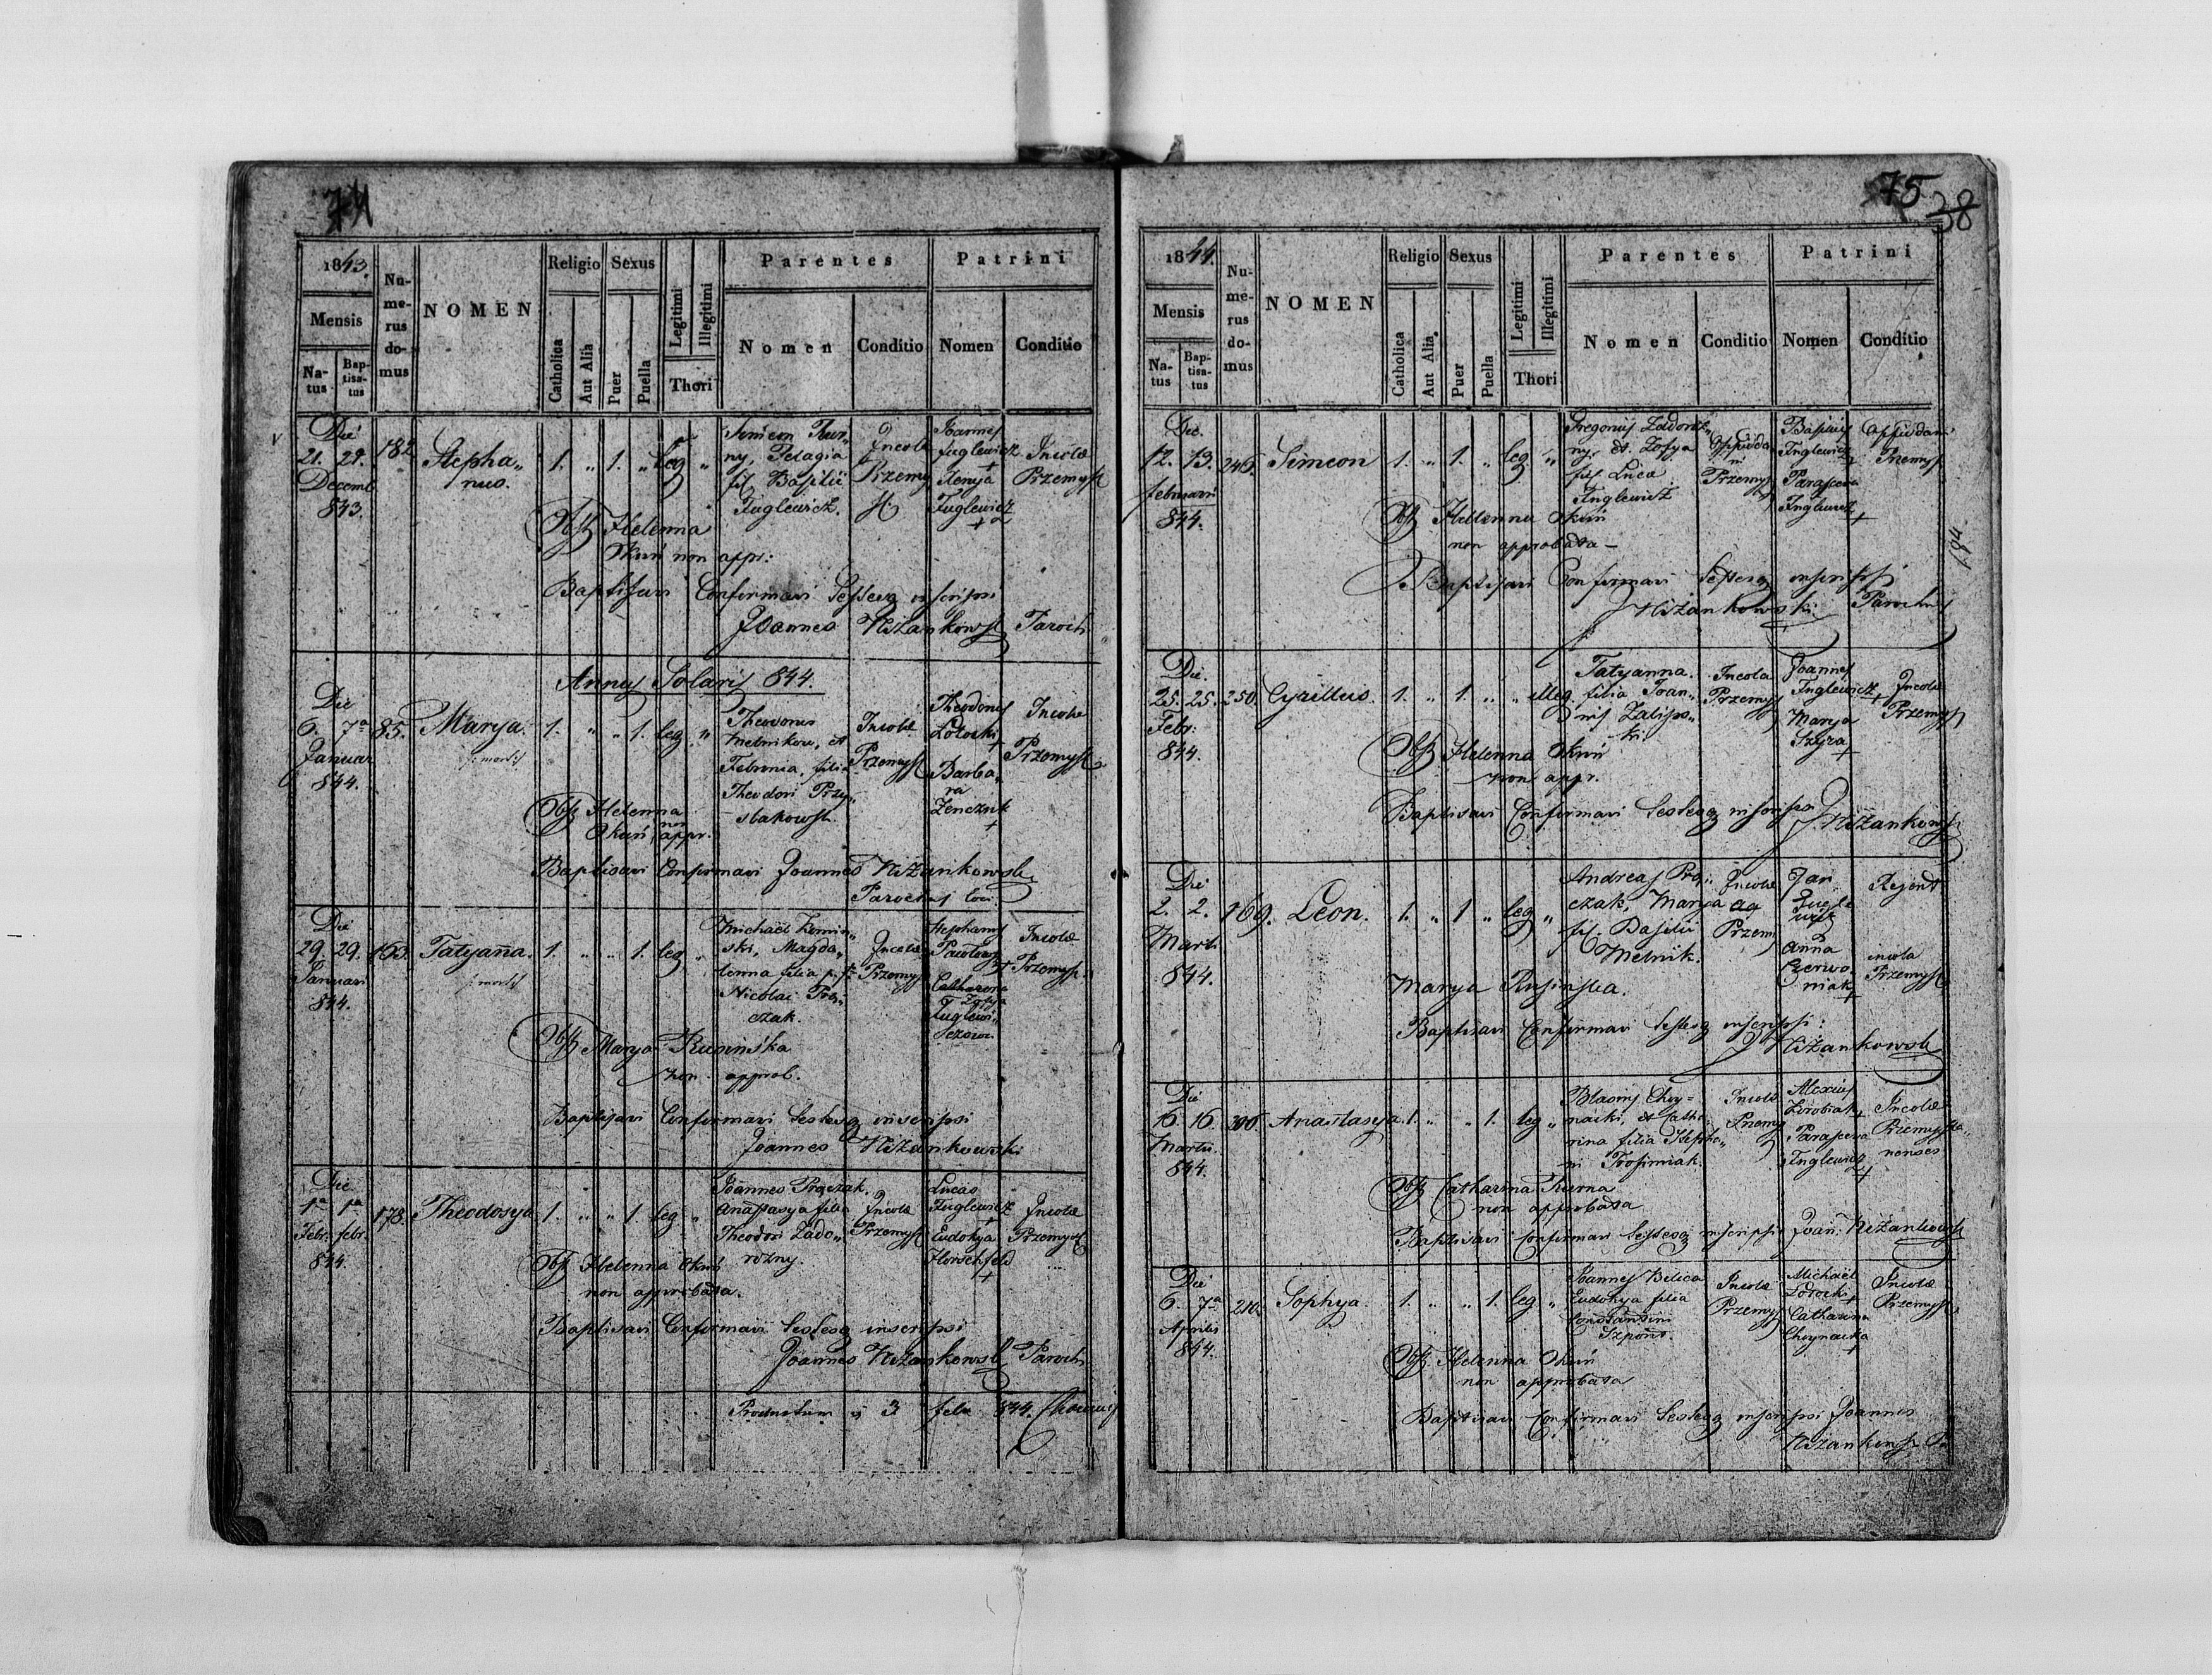 74
1843.
Mensis
Na-
tus
Bap-
tisa-
tus
Nu-
me-
rus
do-
mus
NOMEN
Religio
Catholica
Aut Alia
Sexus
Puer
Puella
Legitimi
Illegitimi
Thori
Parentes
Nomen
Conditio
Patrini
Nomen
Conditio
Die
21. 29. 182
Decemb
843.
Stepha„
nus.
1. „ 1. „ leg „
Simeon Kur„
ny, Pelagia
fil Basilii
Fuglewicz.
Incolae
Przemy
sl.
Joannes
Fuglewicz
+
Xenya
Fuglewicz
+
Incolae
Przemysl
Obst Helenna
Okuń non appr:
Baptisavi Confirmavi Testesq inscripsi
Joannes Niżankowski Paroch
Annus Solaris 844.
Die
6. 7a 85.
Januar
844.
Marya.
1. „ „ 1. leg. „
Theodorus
Melnikow, et
Febronia, filia
Theodori Przy„
stakowsk.
Incolae
Przemysl
Theodorus
Łotocki
+
Barba„
ra
Zenczak
+
Incolae
Przemysl
Obst Helenna
Okuń non appr.
Baptisavi Confirmavi Joannes Niżankowski
Parochus loci.
Die
29. 29. 163.
Januari
844.
Tatyanna.
1. „ „ 1. leg „
Michaël
ski, Magda„
lenna filia
Nicolai Pra„
czak.
Incolae
Przemysl
Stephanus
Catharena
Zofya
Fuglewi„
czowa
Incolae
Przemysl.
Obst Marya Rusinska
non approb.
Baptisavi Confirmavi Testesq inscripsi
Joannes Niżankowski
Die
1a 1a 178.
Febr. febr.
844.
Theodosya
1. „ „ 1. leg „
Joannes Praczak.
Anastasya filia
Theodori Zado„
rożny.
Incolae
Przemysl
Lucas
Fuglewicz
+
Eudokya
Horschfeld
+
Incolae
Przemysl
Obst Helenna Okuń
non approbata.
Baptisavi Confirmavi Testesq inscripsi
Joannes Niżankowski Paroch
Productum 3 febr 844.
75
38
1844.
Mensis
Na-
tus
Bap-
tisa-
tus
Nu-
me-
rus
do-
mus
NOMEN
Religio
Catholica
Aut Alia
Sexus
Puer
Puella
Legitimi
Illegitimi
Thori
Parentes
Nomen
Conditio
Patrini
Nomen
Conditio
Die.
12. 13. 246.
februarii
844.
Simeon
1. „ 1. „ leg. „
Gregorius Zadoroż„
ny, et Zofya
fil Lucae
Fuglewicz
Oppida
ni
Przemysl
Basilius
Fuglewicz
+
Parasceva
Fuglewicz
+
Oppidani
Przemysl
Obst Helenna Okuń
non approbata –
Baptisavi Confirmavi Testesq inscripsi
Niżankowski Parochus
Die.
25. 25. 250.
Febr:
844.
Cyrillus.
1. „ 1. „ „ illeg
Tatyanna.
filia Joan„
nis Zalipo„
ki.
Incola
Przemysl
Joannes
Fuglewicz
+
Marya
Szyra
+
Incolae
Przemysl
Obst Helenna Okuń
non appr.
Baptisavi Confirmavi Testesq inscripsi J. Niżankowski
Die
2. 2. 169.
Marti
844.
Leon.
1. „ 1 „ leg „
Andreas Pra„
czak, Marya
fil. Basilii
Melnik.
Incolae
Przem
Jan
Fugle
wicz
Anna
Czerwo„
niak
+
Rejent
incola
Przemysl
Marya Rusinska.
Baptisavi Confirmavi Testesq inscripsi:
Niżankowski
Die
16. 16. 306.
Martii.
844.
Anastasya.
1. „ „ 1. leg „
Blasius Choy=
nacki, et Catha„
rina filia Stepha„
ni Trofimiak.
Incolae
Przemy
Alexius
Parasceva
Fuglewicz
+
Incolae
Przemysla„
nenses
Obst Catharina Kurna
non approbata
Baptisavi Confirmavi Testesq inscripsi Joan. Niżankowski
Die
6. 7a 210.
Aprilis
844.
Sophya.
1. „ „ 1. leg „
Joannes Belica
Eudokya filia
Constantini
Szpons.
Incolae
Przemysl
Michaël
Łotocki
+
Catharina
Choynacka
+
Incolae
Przemysl
Obst. Helenna Okuń
non approbata
Baptisavi Confirmavi Testesq inscripsi Joannes
Niżankowski P.